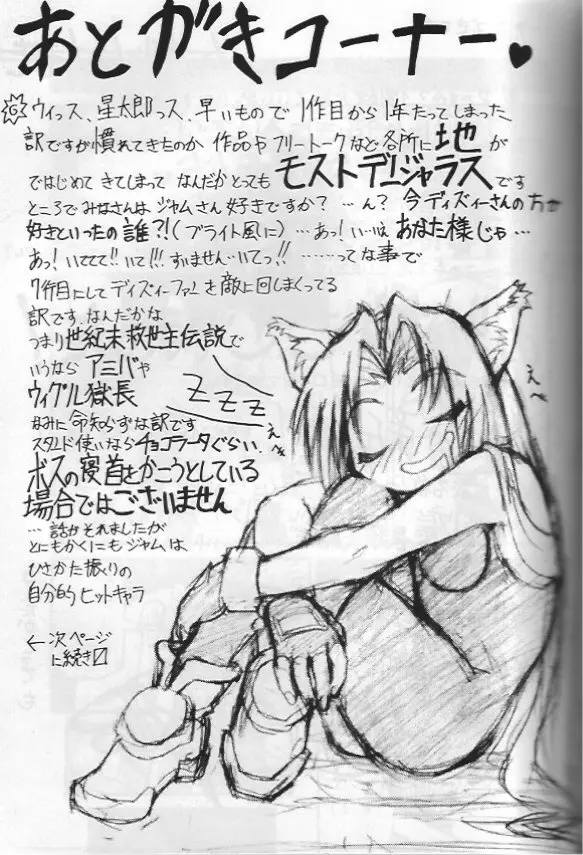 あとがきコーナー♥
ウィっス、星太郎っス、早いもので1作目から1年たってしまった
訳ですが慣れてきたのか 作品やフリートークなど各所に地が
ではじめてきてしまって なんだかとっても モストデンジャラスです
ところでみなさんはジャムさん好きですか? …ん? 今ディズィーさんの方が
好きといったの誰?!(ブライト風に)…あっ! い…いえあなた様じゃ…
あっ! いててて!! いて!!! すいません…いてっ!! ……ってな事で
7作目にしてディズィーファンを敵に回しまくってる
訳です、なんだかな
つまり世紀末救世主伝説で
いうなら アミバや
ウイグル獄長
なみに命知らずな訳です
スタンド使いならチョコラータぐらい、
ボスの寝首をかこうとしている
場合ではございません
…話がそれましたが
とにもかくにもジャムは、
ひさかた振りの
自分的ヒットキャラ
←次ページ
に続き
ZZZ
えへ
えへ